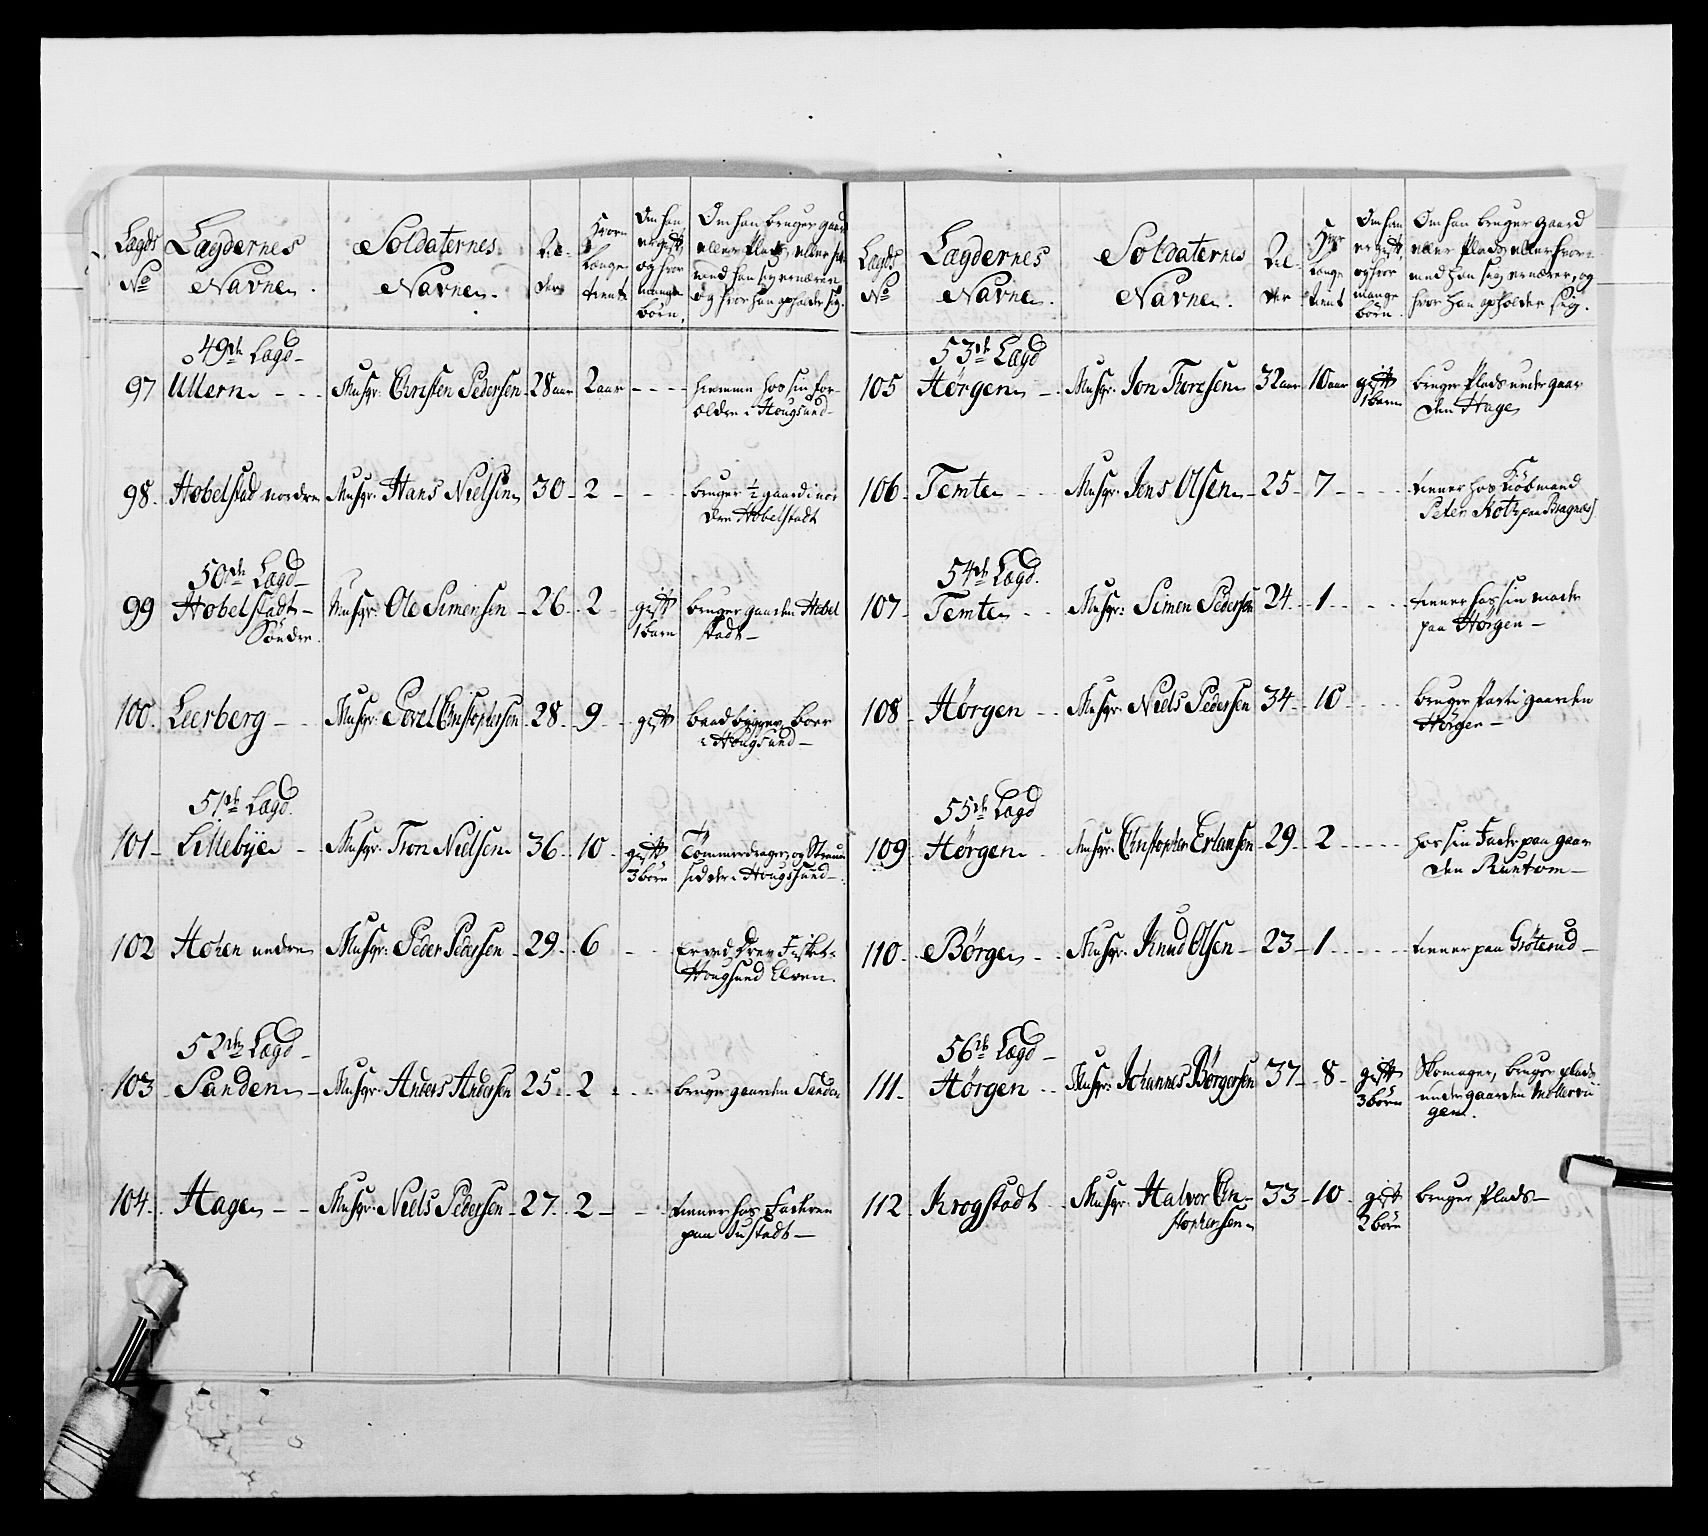 Lægds No
Lægdernes Navne.
Soldaternes Navne.
Al-der
Hvor længe tient
Om han er gift, og hvor mange børn.
Om han bruger gaard eller Plads, eller hvormed han sig ernærer, og hvor han opholder sig.
49de Lægd
97 Ullern - - - Musqr. Christen Pedersen 28 aar 2 aar - - - - hiemme hos sin for-
ældre i Hougsund
98. Hobelstad nordre Musqr. Hans Nielsen 30 - 2 - - - bruger 1/2 gaard i nor
dre Hobelstadt
50de Lægd
99 Hobelstadt Søndre. Musqr. Ole Simensen - 26 - 2 - gift 1 barn bruger gaarden Hobel
stadt
100. Leerberg - - Musqr. Povel Christophersen 28 - 9 - gift baad bygger, boer
i Hougsund
51de Lægd.
101 Lillebÿe - Musqr. Tron Nielsen 36 - 10 - gift 3 børn Tømmerdrager og
i Hougsund
102 Hohen nedre Musqr. Peder Pedersen - 29 - 6 - - -
Hougsund Elven.
52de Lægd
103 Sanden - Musqr. Anders Andersen 25 - 2 - - - - bruger gaarden Sanden
104. Hagen - - Musqr. Niels Pedersen - 27 - 2 - - - tiener hos Faderen
paa Sustadt
Lægds No
Lægdernes Navne.
Soldaternes Navne.
Al-der
Hvor længe tient
Om han er gift, og hvor mange børn.
Om han bruger gaard eller Plads eller hvor-
med han sig ernærer, og
hvor han opholder sig.
53de Lægd
105 Hørgen - Musqr. Jon Thoresen 32 aar 10 aar gift 1 barn bruger Plads under gaar
den Hagen
106. Temte - - Musqr. Jens Olsen - 25 - 7 - - - - tiener hos Kiøbmand
Peter Kotz paa Bragnæs
54de Lægd.
107. Temte - - Musqr: Simen Pedersen 24 - 1 - - - - tiener hos sin moder
paa Hørgen
108. Hørgen - - Musqr. Niels Pedersen 34 - 10 - - - - bruger Part i gaarden
Hørgen
55de Lægd
109 Hørgen - Musqr. Christopher Erlandsen 29 - 2 - - - - - hos sin Fader paa gaar
den Runtom
110. Børge - - Musqr. Knud Olsen - 23 - 1 - - - - - tiener paa Grøterud
56de Lægd
111. Hørgen - - Musqr: Johannes Børgersen 37 - 8 - gift 3 børn Skomager, bruger plads
under gaarden
gen.
112 Krogstadt - Musqr. Halvor Chri-
stophersen 33 - 10 - gift 2 børn bruger Plads